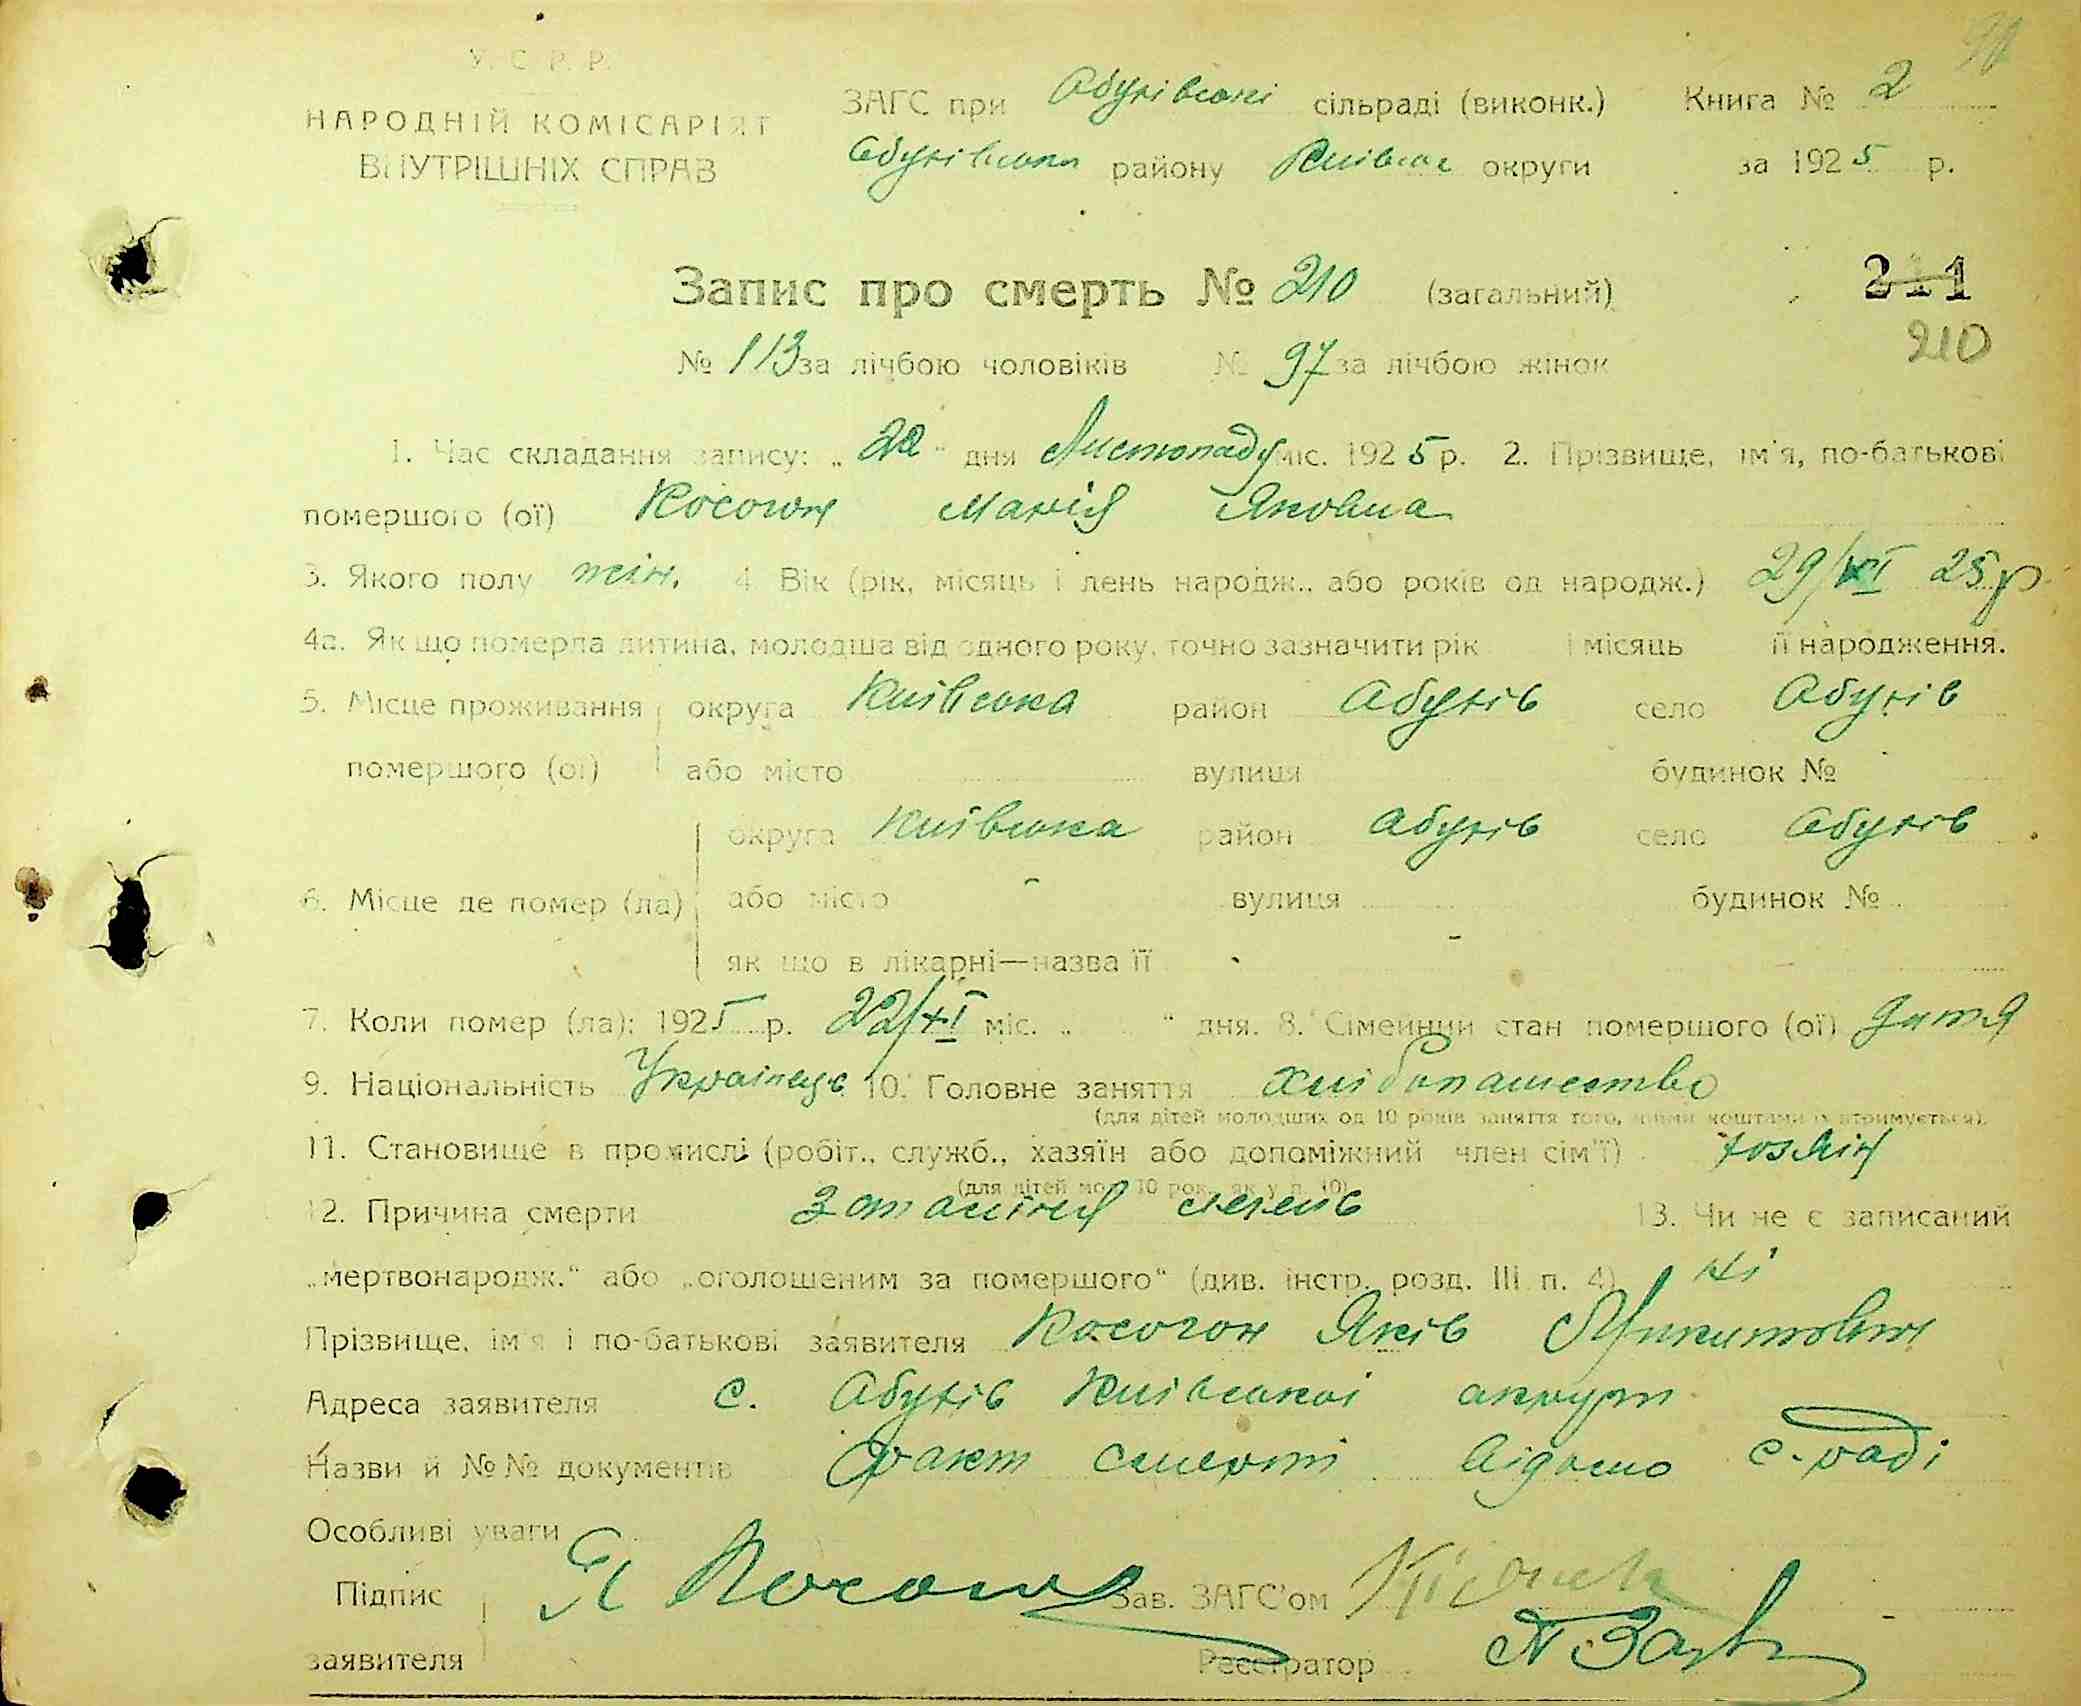 91
У. С. Р. Р.
НАРОДНІЙ КОМІСАРІЯТ
ВНУТРІШНІХ СПРАВ
ЗАГС при Обухівські сільраді (виконк.) Книга № 2
Обухівськи району Київськ округи за 1925 р.
Запис про смерть № 210 (загальний) 211
210
№ 113 за лічбою чоловіків № 97 за лічбою жінок
1. Час складання запису: „22" дня Листопаду міс. 1925 р. 2. Прізвище, ім'я, по-батькові
помершого (ої) Косогон Марія Яковна
3. Якого полу жін. 4. Вік (рік, місяць і день народж., або років од народж.) 29/ 25 р
4а. Як що померла дитина, молодша від одного року, точно зазначити рік і місяць її народження.
5. Місце проживання округа Київська район Обухів село Обухів
помершого (ої) або місто вулиця будинок №
округа Київська район Обухів село Обухів
6. Місце де помер (ла) або місто вулиця будинок №
як що в лікарні—назва її
7. Коли помер (ла): 1925 р. 22/XI міс. „ " дня. 8. Сімейний стан помершого (ої) дитя
9. Національність Українць 10. Головне заняття хліборашество
(для дітей молодших од 10 років заняття того, чиїми коштами їх втримується).
11. Становище в промислі (робіт., служб., хазяїн або допоміжний член сім'ї) хозяїн
(для дітей мол. 10 рок. як у п. 10)
12. Причина смерти легень 13. Чи не є записаний
„мертвонародж." або „оголошеним за помершого" (див. інстр. розд. III п. 4) ні
Прізвище, ім'я і по-батькові заявителя Косогон Яків Микитович
Адреса заявителя с. Обухів Київської округи
Назви й №№ документів Факт смерті відомо с. раді
Особливі уваги
Підпис Я Косогон Зав. ЗАГС'ом
заявителя Реєстратор